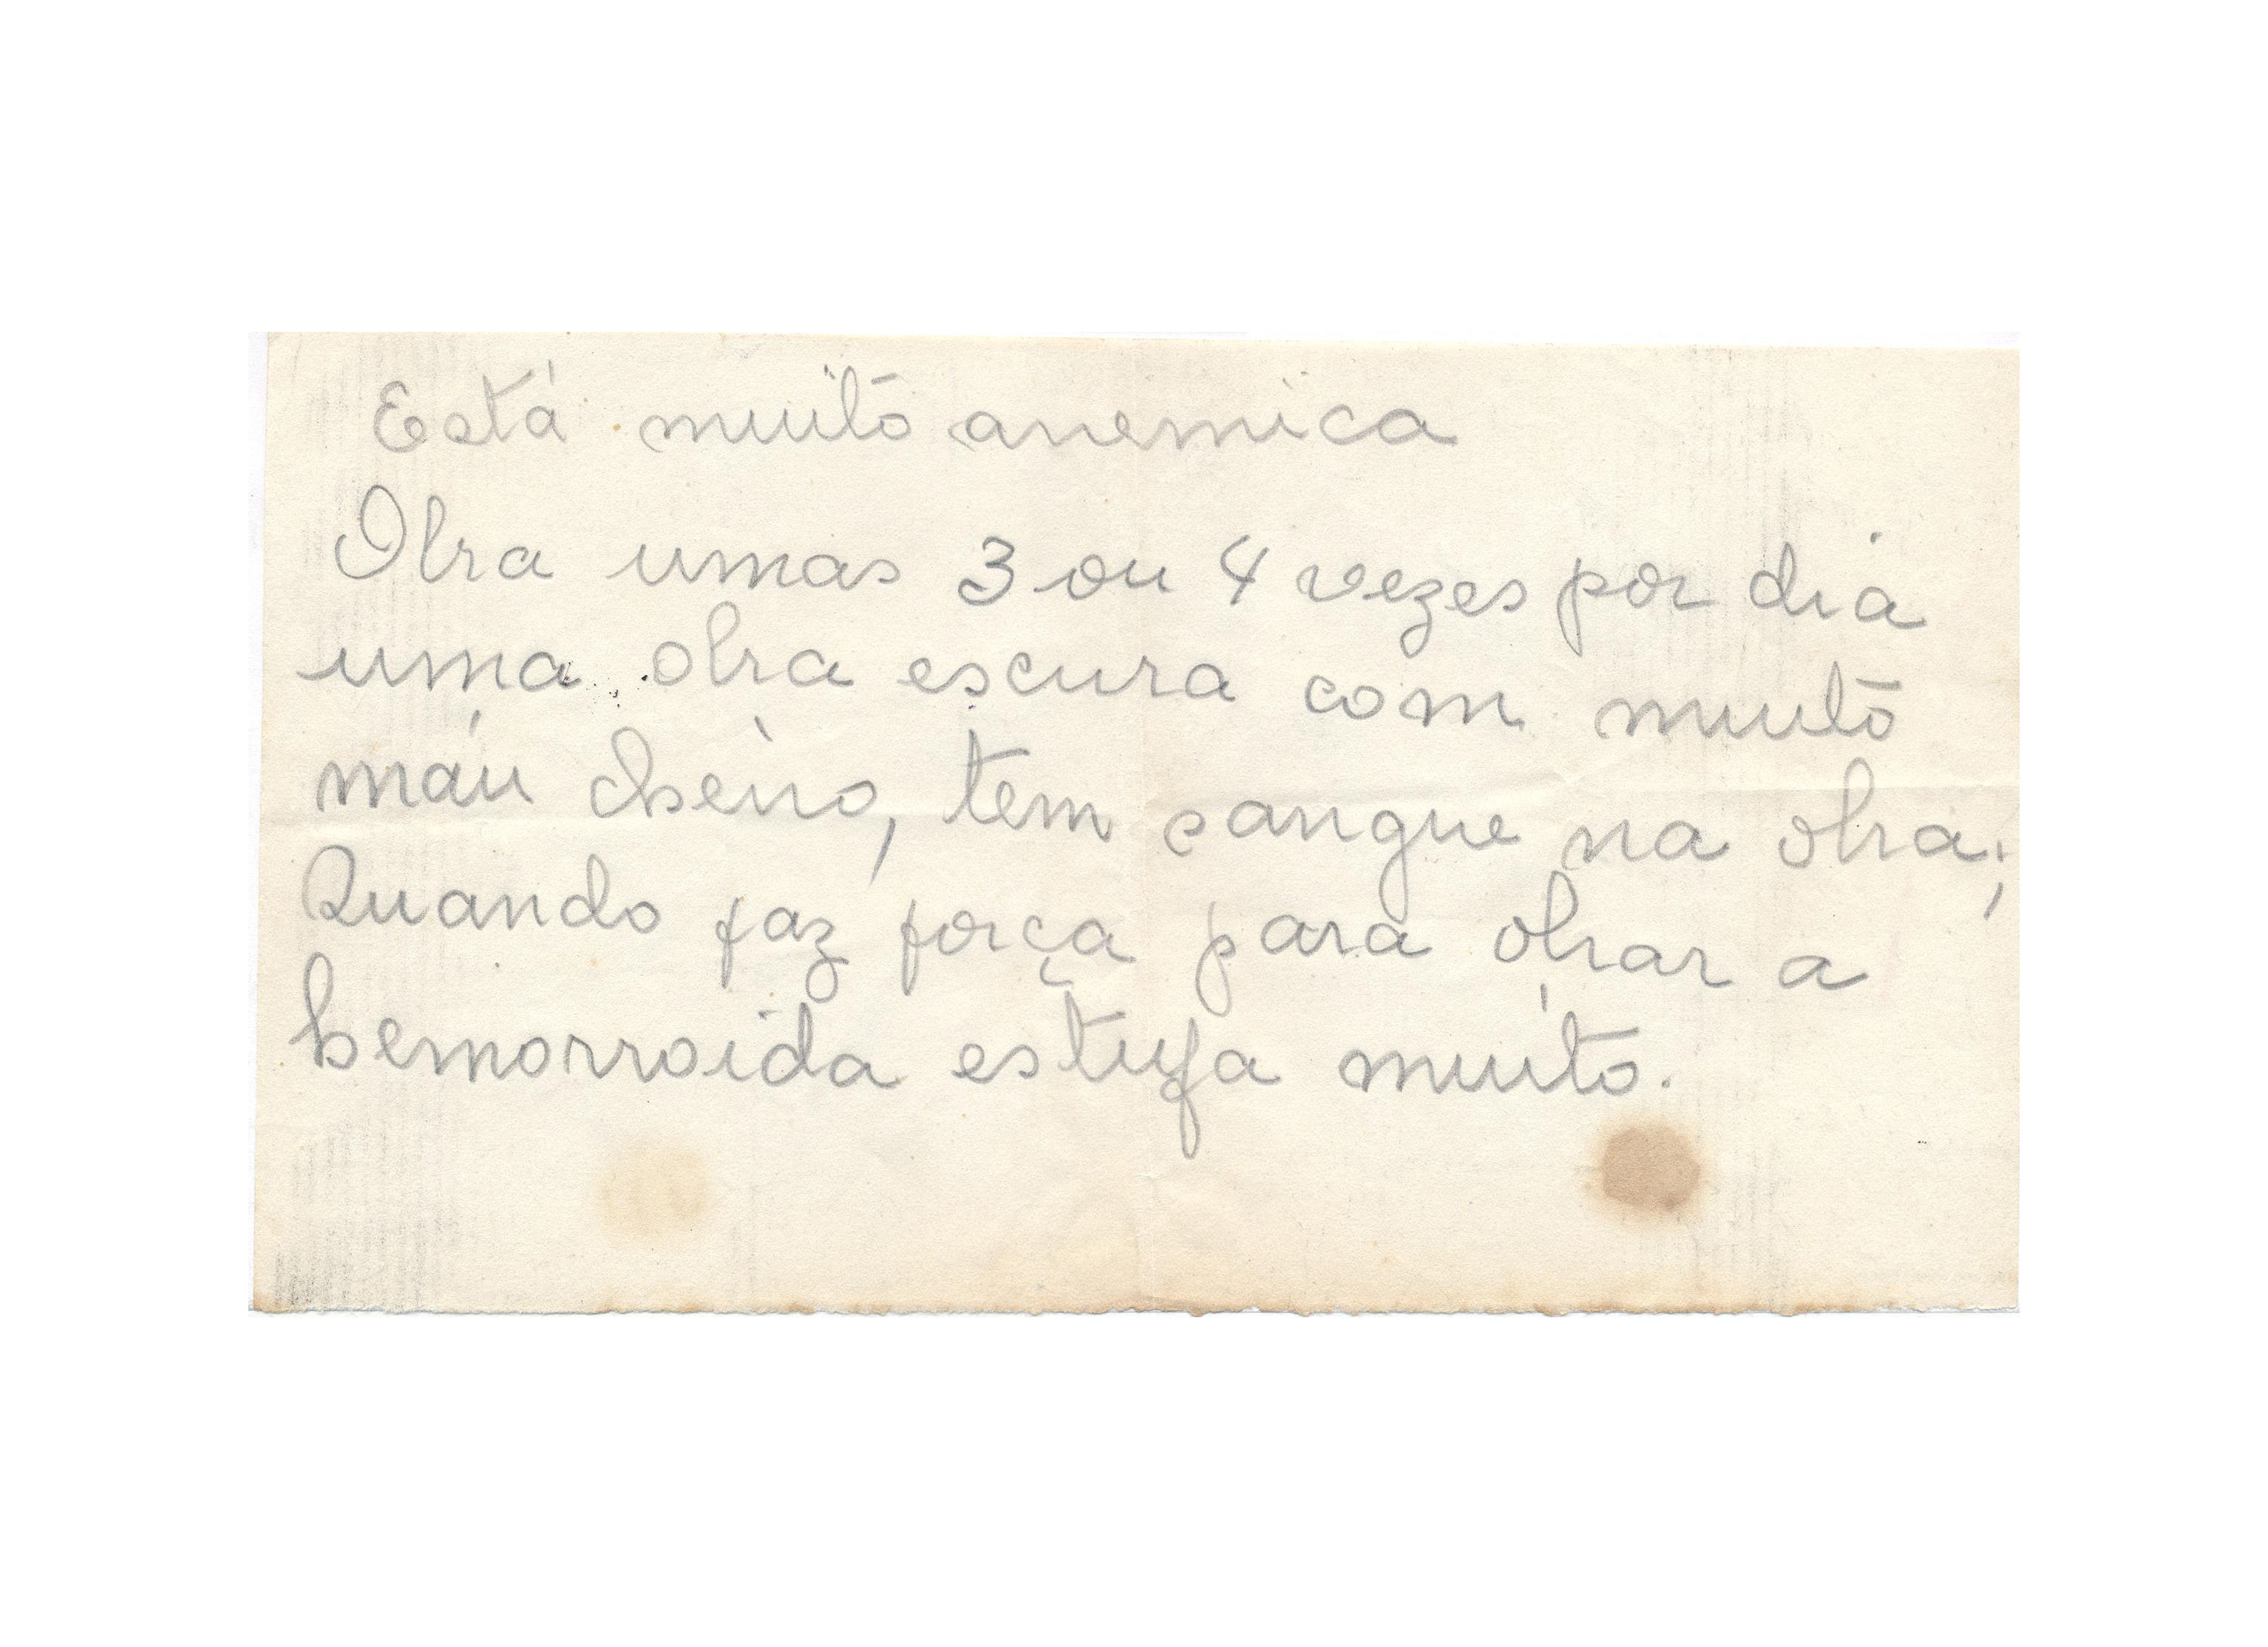 Está muito anemica
Obra umas 3 ou 4 vezes por dia
uma obra escura com muito
máu cheiro, tem sangue na obra;
Quando faz força para obrar a
hemorroida estufa muito.